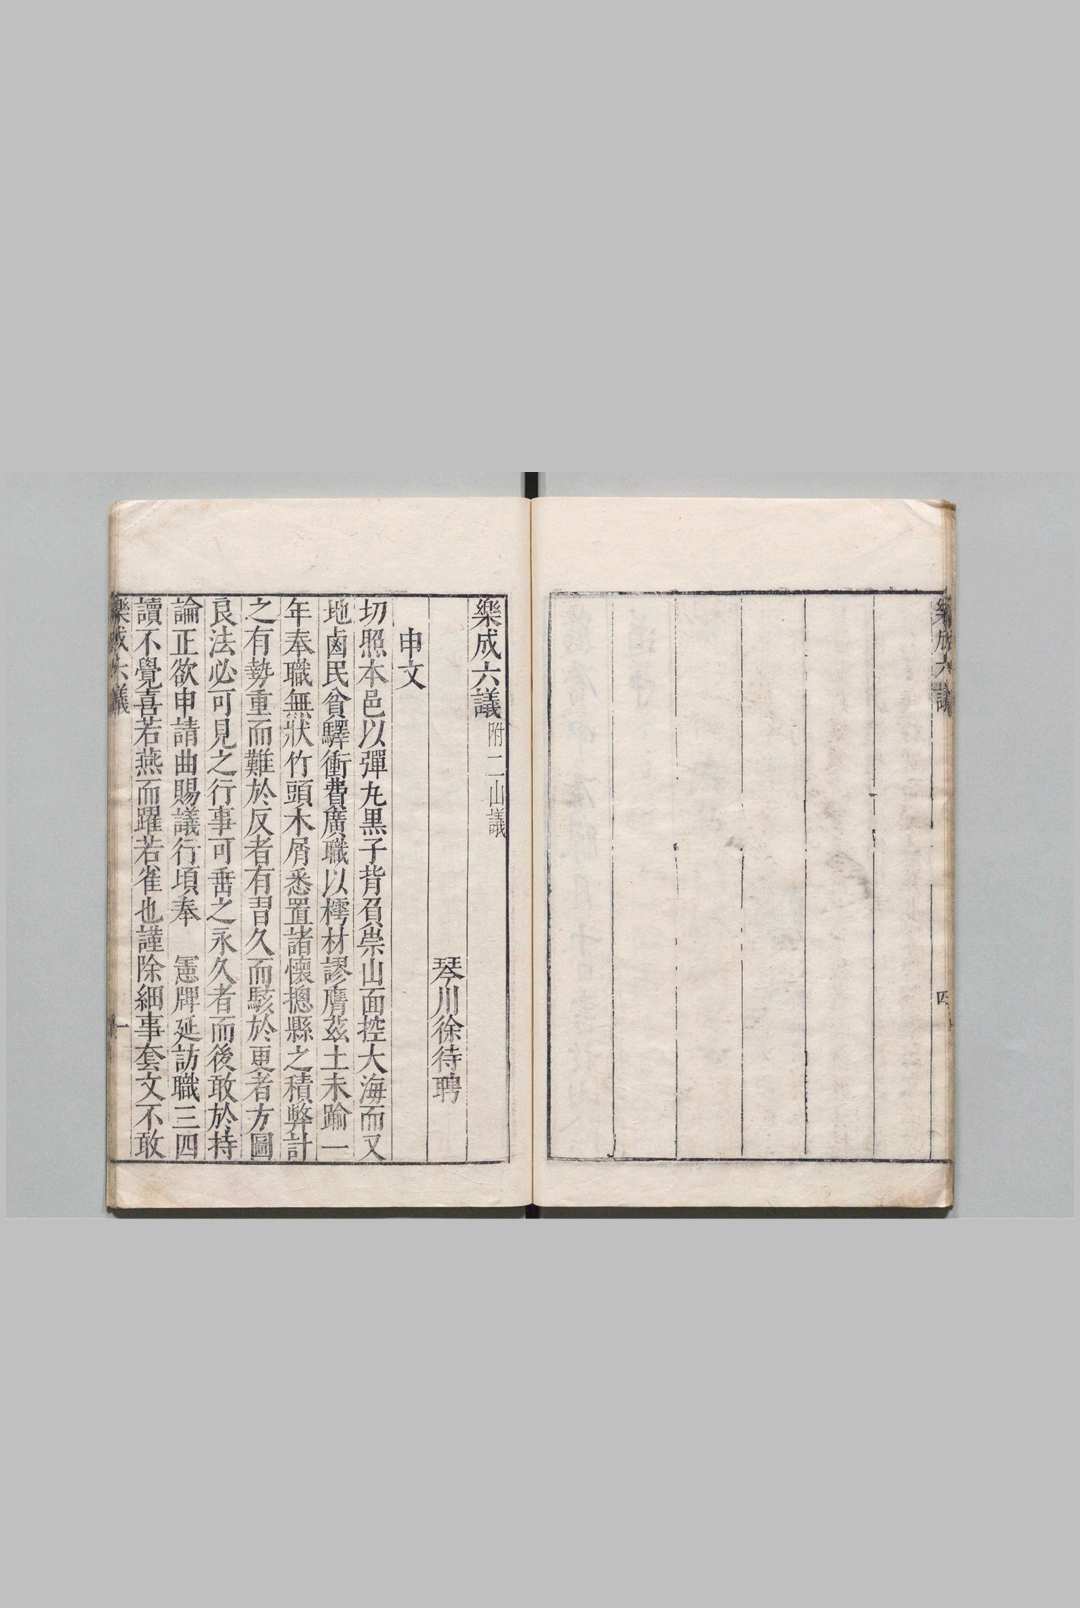 樂成六議
四
樂成六議附二山議
琴川徐待聘
申文
切照本邑以彈丸黒子背負崇山面控大海而又
地鹵民貧驛衝費廣職以樗材謬膺茲土未踰一
年奉職無狀竹頭木屑悉置諸懷摠縣之積弊計
之有勢重而難於反者有習久而駭於更者方圖
良法必可見之行事可垂之永久者而後敢於持
論正欲申請曲賜議行頃奉　憲牌延訪職三四
讀不覺喜若燕而躍若雀也謹除細事套文不敢
樂成六議
一